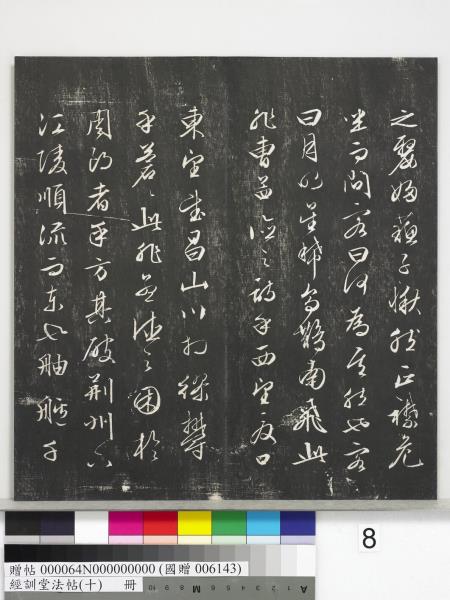 之嫠婦蘇子愀然正襟危
坐而問客曰何為其然也客
曰月明星稀烏鵲南飛此
非曹孟德之詩乎西望夏口
東望武昌山川相繆鬱
乎蒼〻此非孟德之困於
周郎者乎方其破荊州下
江陵順流而東也舳艫千
8
贈帖 000064N000000000 (國贈 006143)
經訓堂法帖(十) 冊